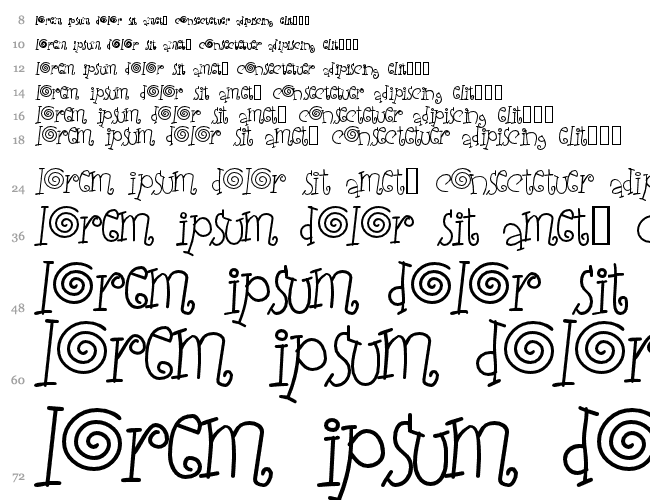 8 lorem ipsum dolor sit amet▯ consectetuer adipiscing elit▯▯▯
10 lorem ipsum dolor sit amet▯ consectetuer adipiscing elit▯▯▯
12 lorem ipsum dolor sit amet▯ consectetuer adipiscing elit▯▯▯
14 lorem ipsum dolor sit amet▯ consectetuer adipiscing elit▯▯▯
16 lorem ipsum dolor sit amet▯ consectetuer adipiscing elit▯▯▯
18 lorem ipsum dolor sit amet▯ consectetuer adipiscing elit▯▯▯
24 lorem ipsum dolor sit amet▯ consectetuer adip
36 lorem ipsum dolor sit amet▯ c
48 lorem ipsum dolor sit
60 lorem ipsum dolor
72 lorem ipsum do